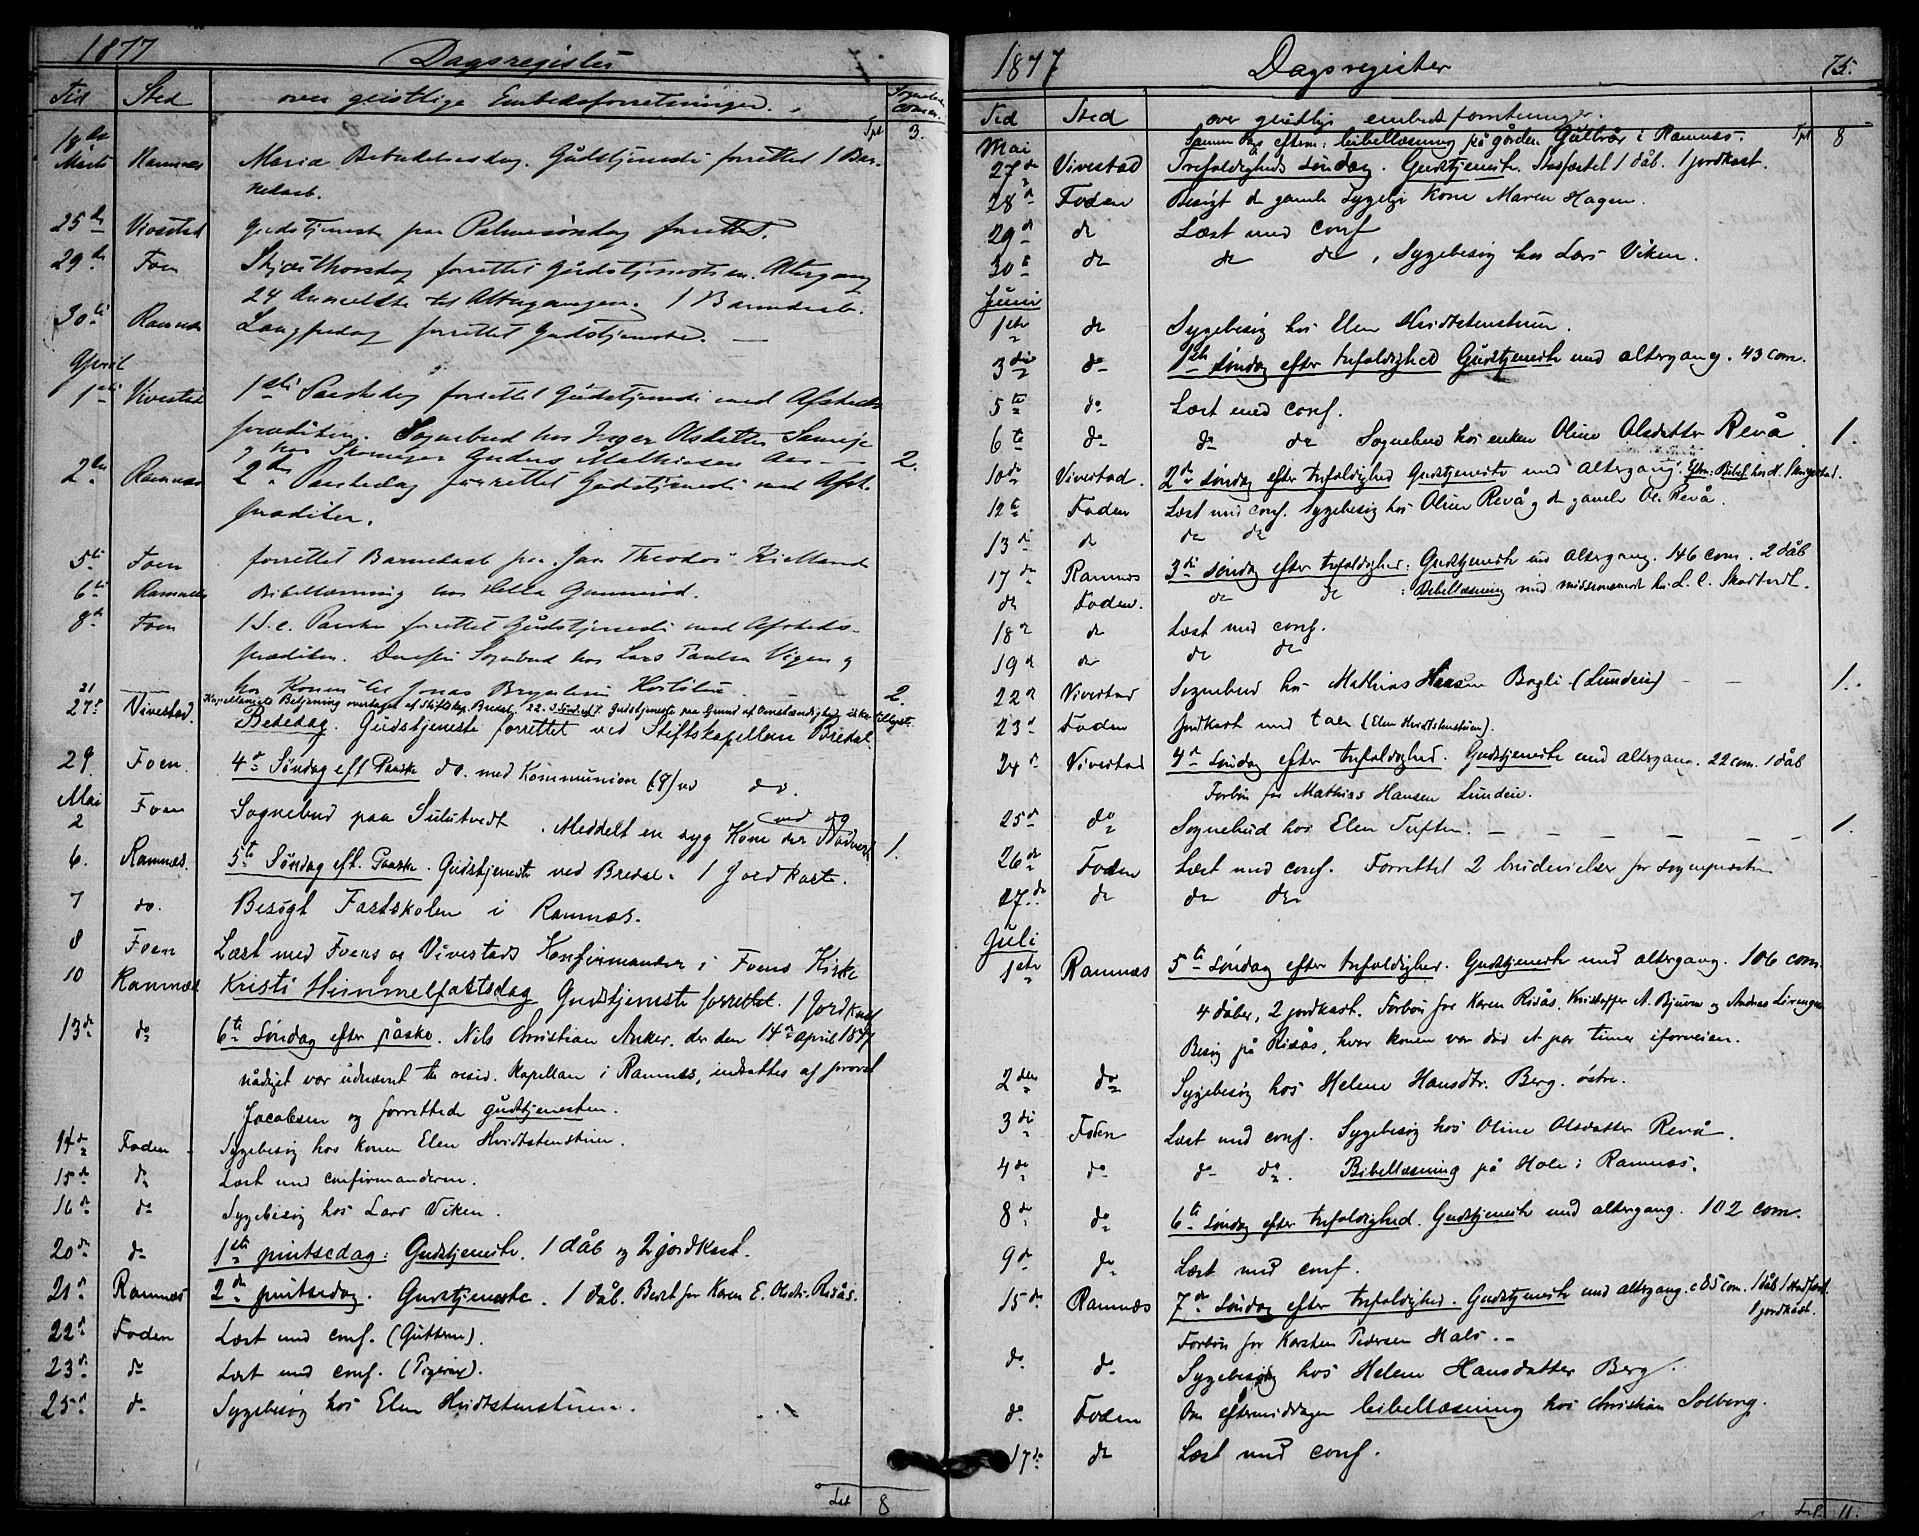 1877 Dagsregister
Tid Sted over geistlige Embedsforretninger. Sognebuds Comm.
Tpt 3.
18de Marts Ramnæs Maria Bebudelsesdag. Gudstjeneste forrettet 1 Bar-
nedaab.
25de Vivestad Gudstjeneste paa Palmesøndag forrettet.
29de Foen Skjærthorsdag forrettet Gudstjenesten. Altergang
24 Anmeldte til Altergangen. 1 Barnedaab.
30te Ramnæs Langfredag forrettet Gudstjeneste. —
April
1ste Vivestad 1ste Paaskedag forrettet Gudstjeneste med Afskeds-
præditen. Sognebud hos Inger Olsdatter
og hos Anders Mathiesen 2.
2den Ramnæs 2den Paaskedag forrettet Gudstjeneste med Afsk.
præditen.
5te Foen forrettet Barnedaab paa Jan Theodor Kielland
6te Ramnæs Bibellæsning hos Helle Gunnerød.
8de Foen 1 S. e. Paaske forrettet Gudstjeneste med Afskeds-
præditen. Derefter Sognebud hos Lars Paulsen Vigen og
hos Konen til Jonas 2.
21 Kapellaniets Betjening overtaget af Stiftskap. Bredal. 22. 3 Sønd. eft. Gudstjeneste paa Grund af Omstændigheder ikke tillyst.
27de Vivestad. Bededag. Gudstjeneste forrettet ved Stiftskapellan Bredal.
29. Foen. 4de Søndag eft Paaske do. med Kommunion (8) do.
Mai
2 Foen Sognebud paa Sulutvedt. Meddelt en syg Kone der Nadveren 1.
6. Ramnæs. 5te Søndag eft. Paaske. Gudstjeneste ved Bredal. 1 Jordkaste.
7 do. Besøgt Fastskolen i Ramnæs.
8 Foen Læst med Foens og Vivestads Konfirmander i Foens Kirke
10 Ramnæs Kristi Himmelfartsdag Gudstjeneste forrettet. 1 Jordkast
13de do 6te Søndag efter påske. Nils Christian Anker, der den 14de april 1877
nådigst var udnævnt til resid. Kapellan i Ramnæs, indsattes af provst
Jacobsen og forrettede gudstjenesten.
14de Foden Sygebesøg hos konen Elen Hvidtstenstuen.
15de do Læst med confirmanderne.
16de do Sygebesøg hos Lars Viken.
20de do 1ste pintsedag: Gudstjeneste. 1 dåb og 2 jordkast.
21de Ramnæs 2den pintsedag. Gudstjeneste. 1 dåb. Bedt for Karen E. Olsdr. Risås.
22de Foden Læst med conf. (Gutterne).
23de do Læst med conf. (Pigerne).
25de do Sygebesøg hos Elen Hvidtstenstuen.
Lat. 8
1877 Dagsregister 75.
Tid Sted over geistlige embedsforretninger.
Mai Samme dags efterm: bibellæsning på gården Gultvår i Ramnæs. Tpt 8
27de Vivestad Trefoldigheds søndag. Gudstjeneste. Stadfæstet 1 dåb. 1 jordkast.
28de Foden Besøgt den gamle sygelige kone Maren Hagen.
29de do Læst med conf
30te do do do, Sygebesøg hos Lars Viken.
Juni
1ste do Sygebesøg hos Elen Hvidtstenstuen.
3die do 1ste søndag efter trefoldighed Gudstjeneste med altergang. 43 com.
5te do Læst med conf.
6te do do do Sognebud hos enken Oline Olsdatter Revå. 1.
10de Vivestad. 2den søndag efter trefoldighed Gudstjeneste med altergang. Eftm: Bibell. hos H.
12te Foden Læst med conf. Sygebesøg hos Oline Revå og den gamle Ole Revå.
13de do do do
17de Ramnæs 3die søndag efter trefoldighed: Gudstjeneste med altergang. 146 com. 2 dåb
do Foden. do do : Bibellæsning med missionsmøde hos L. C. Skadtvedt.
18de do Læst med conf.
19de do do do
22de Vivestad Sognebud hos Mathias Hansen Bagli (Lunden) — — 1.
23de Foden Jordkast med tale (Elen Hvidtstenstuen).
24de Vivestad 4de søndag efter trefoldighed. Gudstjeneste med altergang. 22 com. 1 dåb
Forbøn for Mathias Hansen Lunden.
25de do Sognebud hos Elen Tuften. — — — — — — 1.
26de Foden Læst med conf. Forrettet 2 brudevielser for sognepresten
27de do do do
Juli
1ste Ramnæs 5te søndag efter trefoldighed. Gudstjeneste med altergang. 106 com.
4 dåber, 2 jordkast. Forbøn for Karen Risås, Kristoffer A. Bjuerne og Andreas
Besøg på Risås, hvor konen var død et par timer iforveien.
2den do Sygebesøg hos Helene Hansdtr. Berg. østre.
3die Foden Læst med conf. Sygebesøg hos Oline Olsdatter Revå.
4de do do do. Bibellæsning på Hole i Ramnæs.
8de do 6te søndag efter trefoldighed. Gudstjeneste med altergang. 102 com.
9de do Læst med conf.
15de Ramnæs 7de søndag efter trefoldighed. Gudstjeneste med altergang. c 85 com. 1 dåb 1 stadfæst.
1 jordkast.
Forbøn for Karsten Pedersen Hals. —
do do Sygebesøg hos Helene Hansdatter Berg.
do Foden Om eftermiddagen bibellæsning hos Christian Solberg.
17de do Læst med conf.
Lat. 11.